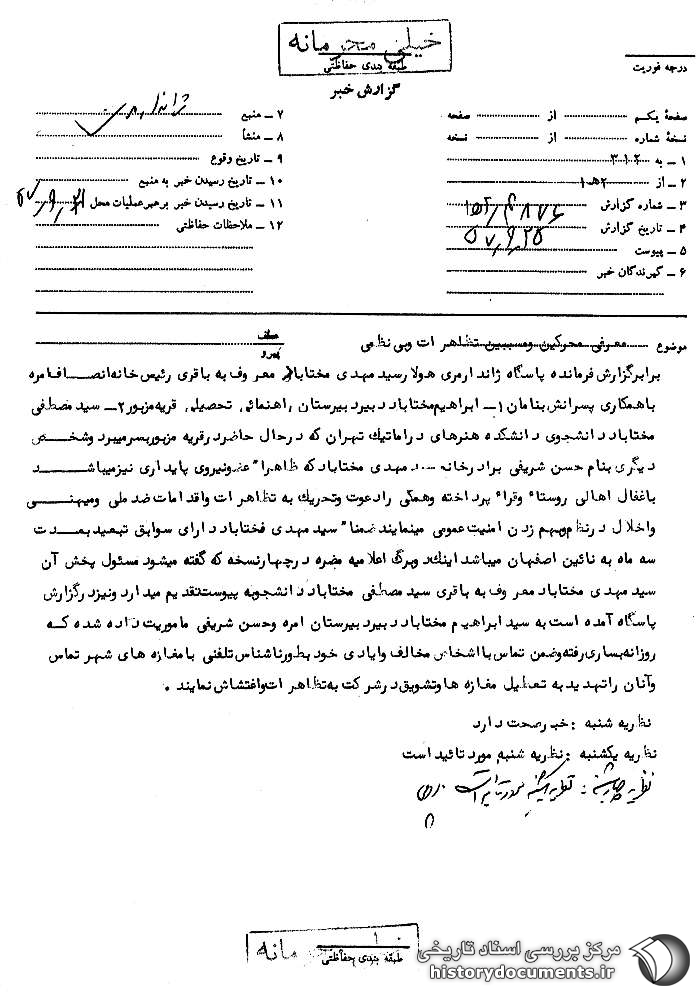 خیلی محرمانه
طبقه بندی حفاظتی
گزارش خبر
درجه فوریت
صفحهٔ یکم از صفحه
نسخهٔ شماره از نسخه
۱ ـ به ۳۱۲
۲ ـ از ۲هـ۱
۳ ـ شماره گزارش
۴ ـ تاریخ گزارش ۵۷٫۹٫۲۵
۵ ـ پیوست
۶ ـ گیرندگان خبر
۷ ـ منبع
۸ ـ منشأ
۹ ـ تاریخ وقوع
۱۰ ـ تاریخ رسیدن خبر به منبع
۱۱ ـ تاریخ رسیدن خبر برهبر عملیات محل
۱۲ ـ ملاحظات حفاظتی
عطف
پیرو
موضوع معرفی محرکین ومسببین تظاهرات وبی نظمی
برابرگزارش فرمانده پاسگاه ژاندارمری هولار سید مهدی مختاباد معروف به باقری رئیس خانه انصاف امره
باهمکاری پسرانش بنامان ۱ـ ابراهیم مختاباد دبیر دبیرستان راهنمائی تحصیلی قریه مزبور ۲ـ سید مصطفی
مختاباد دانشجوی دانشکده هنرهای دراماتیک تهران که درحال حاضر درقریه مزبور بسرمیبرد وشخص
دیگری بنام حسن شریفی برادرخانه مهدی مختاباد که ظاهرا" عضو نیروی پایداری نیز میباشد
باغفال اهالی روستاء وقراء پرداخته وهمگی رادعوت وتحریک به تظاهرات واقدامات ضد ملی ومیهنی
واخلال درنظم وبهم زدن امنیت عمومی مینمایند ضمنا" سید مهدی مختاباد دارای سوابق تبعید بمدت
سه ماه به نائین اصفهان میباشد اینک دوبرگ اعلامیه مضره درچهارنسخه که گفته میشود مسئول پخش آن
سید مهدی مختاباد معروف به باقری سید مصطفی مختاباد دانشجو به پیوست تقدیم میدارد ونیز درگزارش
پاسگاه آمده است به سید ابراهیم مختاباد دبیر دبیرستان امره وحسن شریفی ماموریت داده شده که
روزانه بساری رفته وضمن تماس با اشخاص مخالف وایادی خود بطورناشناس تلفنی با مغازه های شهر تماس
وآنان راتهدید به تعطیل مغازه ها وتشویق درشرکت به تظاهرات واغتشاش نمایند .
نظریه شنبه : خبر صحت دارد
نظریه یکشنبه : نظریه شنبه مورد تائید است
نظریه
طبقه بندی حفاظتی
مرکز بررسی اسناد تاریخی
historydocuments.ir